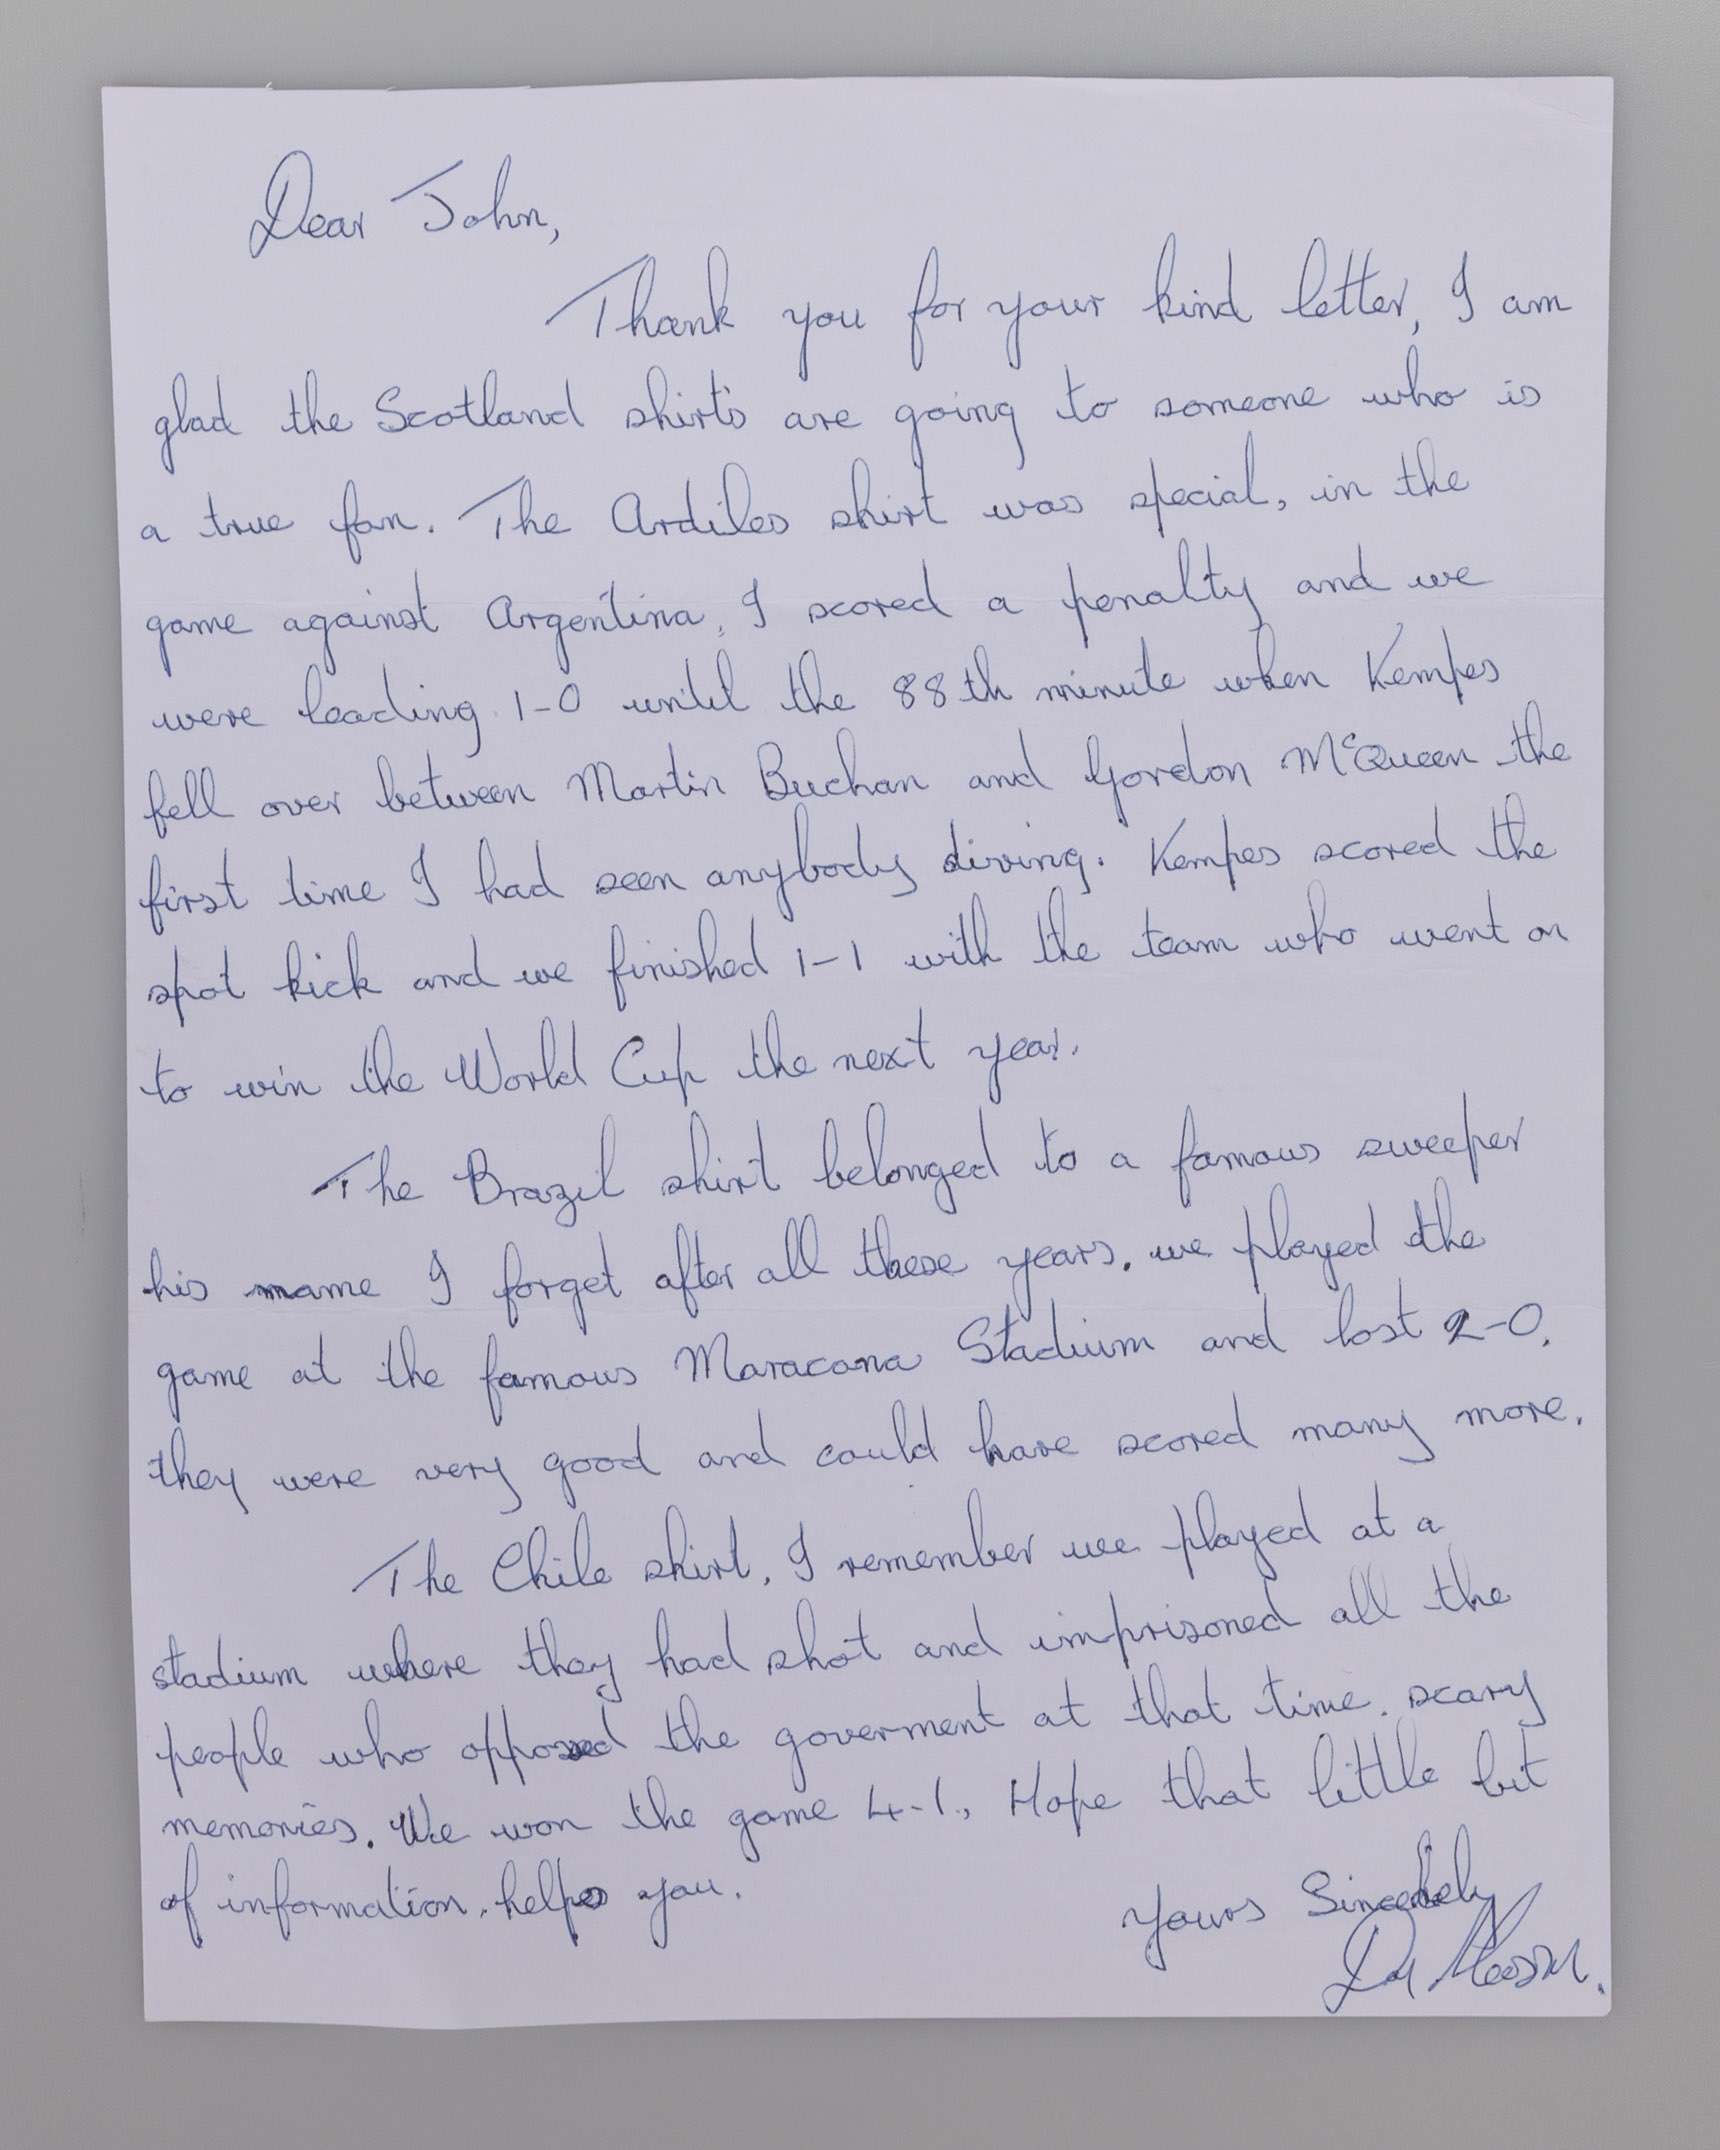 Dear John,
Thank you for your kind letter, I am
glad the Scotland shirts are going to someone who is
a true fan. The Ardiles shirt was special, in the
game against Argentina, I scored a penalty and we
were leading 1-0 until the 88th minute when Kempes
fell over between Martin Buchan and Gordon McQueen the
first time I had seen anybody diving. Kempes scored the
spot kick and we finished 1-1 with the team who went on
to win the World Cup the next year.
The Brazil shirt belonged to a famous sweeper
his name I forget after all these years. we played the
game at the famous Maracana Stadium and lost 2-0.
they were very good and could have scored many more.
The Chile shirt, I remember we played at a
stadium where they had shot and imprisoned all the
people who opposed the goverment at that time. scary
memories. We won the game 4-1., Hope that little bit
of information, helps you.
Yours Sincerely